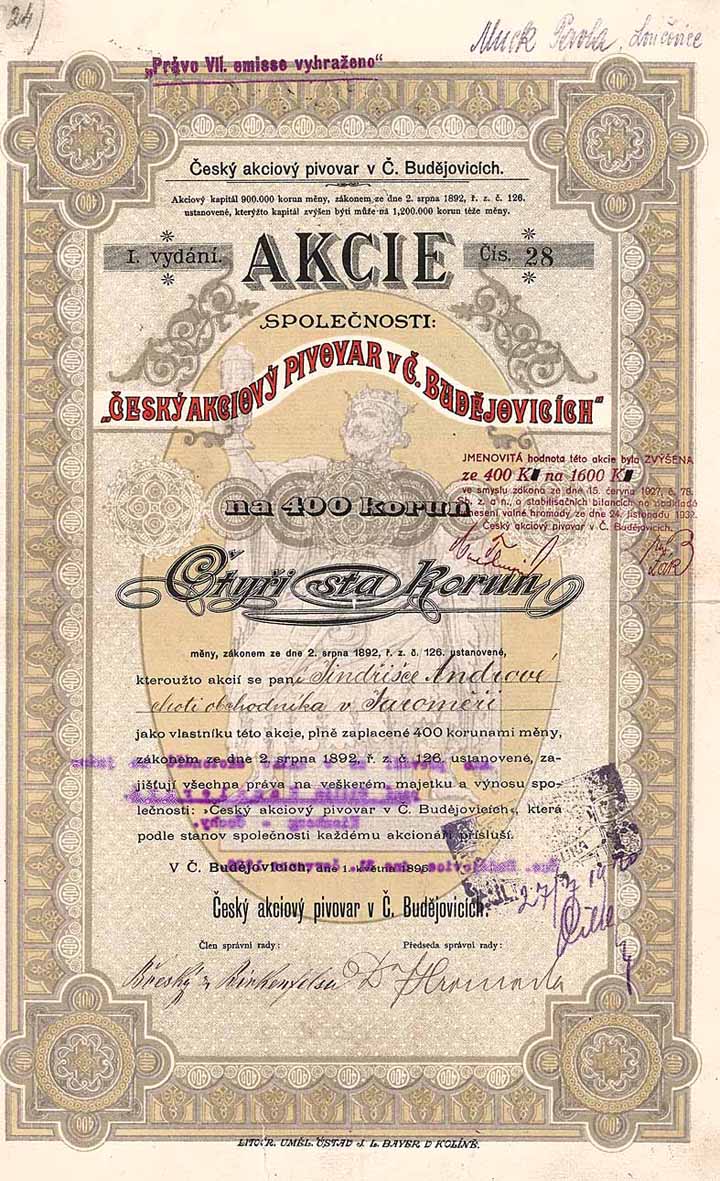 24)
Muck Pavla,
„Právo VII. emisse vyhraženo“
Český akciový pivovar v Č. Budějovicích.
Akciový kapitál 900.000 korun měny, zákonem ze dne 2. srpna 1892, ř. z. č. 126.
ustanovené, kterýžto kapitál zvýšen býti může na 1,200.000 korun téže měny.
I. vydání. AKCIE Čís. 28
SPOLEČNOSTI:
„ČESKÝ AKCIOVÝ PIVOVAR v Č. BUDĚJOVICÍCH“
JMENOVITÁ hodnota této akcie byla ZVÝŠENA
ze 400 Kč na 1600 Kč
ve smyslu zákona ze dne 15. června 1927, č. 78.
Sb. z. a n., o stabilisačních bilancích na podkladě
usnesení valné hromady ze dne 24. listopadu 1932.
Český akciový pivovar v Č. Budějovicích.
na 400 korun
Čtyři sta Korun
měny, zákonem ze dne 2. srpna 1892, ř. z. č. 126. ustanovené,
kteroužto akcií se paní Jindřišce Andrové
choti obchodníka v Jaroměři
jako vlastníku této akcie, plně zaplacené 400 korunami měny,
zákonem ze dne 2. srpna 1892, ř. z. č. 126. ustanovené, za-
jišťují všechna práva na veškerém majetku a výnosu spo-
lečnosti: „Český akciový pivovar v Č. Budějovicích“, která
podle stanov společnosti každému akcionáři přísluší.
V Č. Budějovicích, dne 1. května 1895.
27/7 1920
Český akciový pivovar v Č. Budějovicích.
Člen správní rady: Předseda správní rady:
Dr Hromada
LITOGR. UMĚL. ÚSTAV J. L. BAYER V KOLÍNĚ.